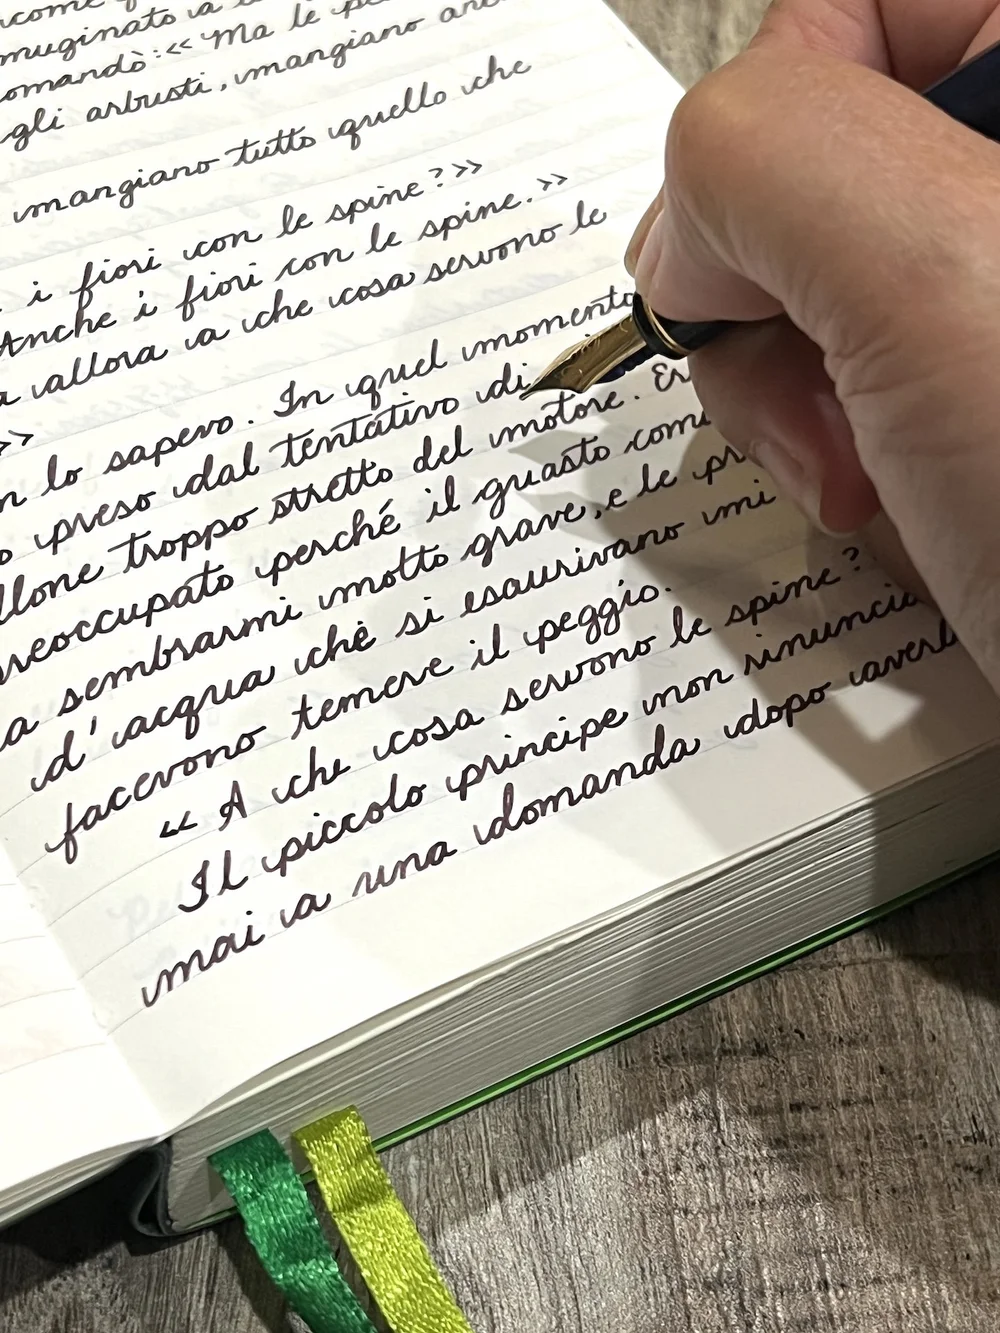 come
muginato a
omandò: « Ma le
gli arbusti, mangiano
mangiano tutto quello che
i fiori con le spine? »
Anche i fiori con le spine. »
allora a che cosa servono le
»
n lo sapevo. In quel momento
preso dal tentativo di
llone troppo stretto del motore. Er
reoccupato perché il guasto com
a sembrarmi molto grave, e le pr
d'acqua che si esaurivano mi
facevono temere il peggio.
« A che cosa servono le spine?
Il piccolo principe non rinuncia
mai a una domanda dopo averl